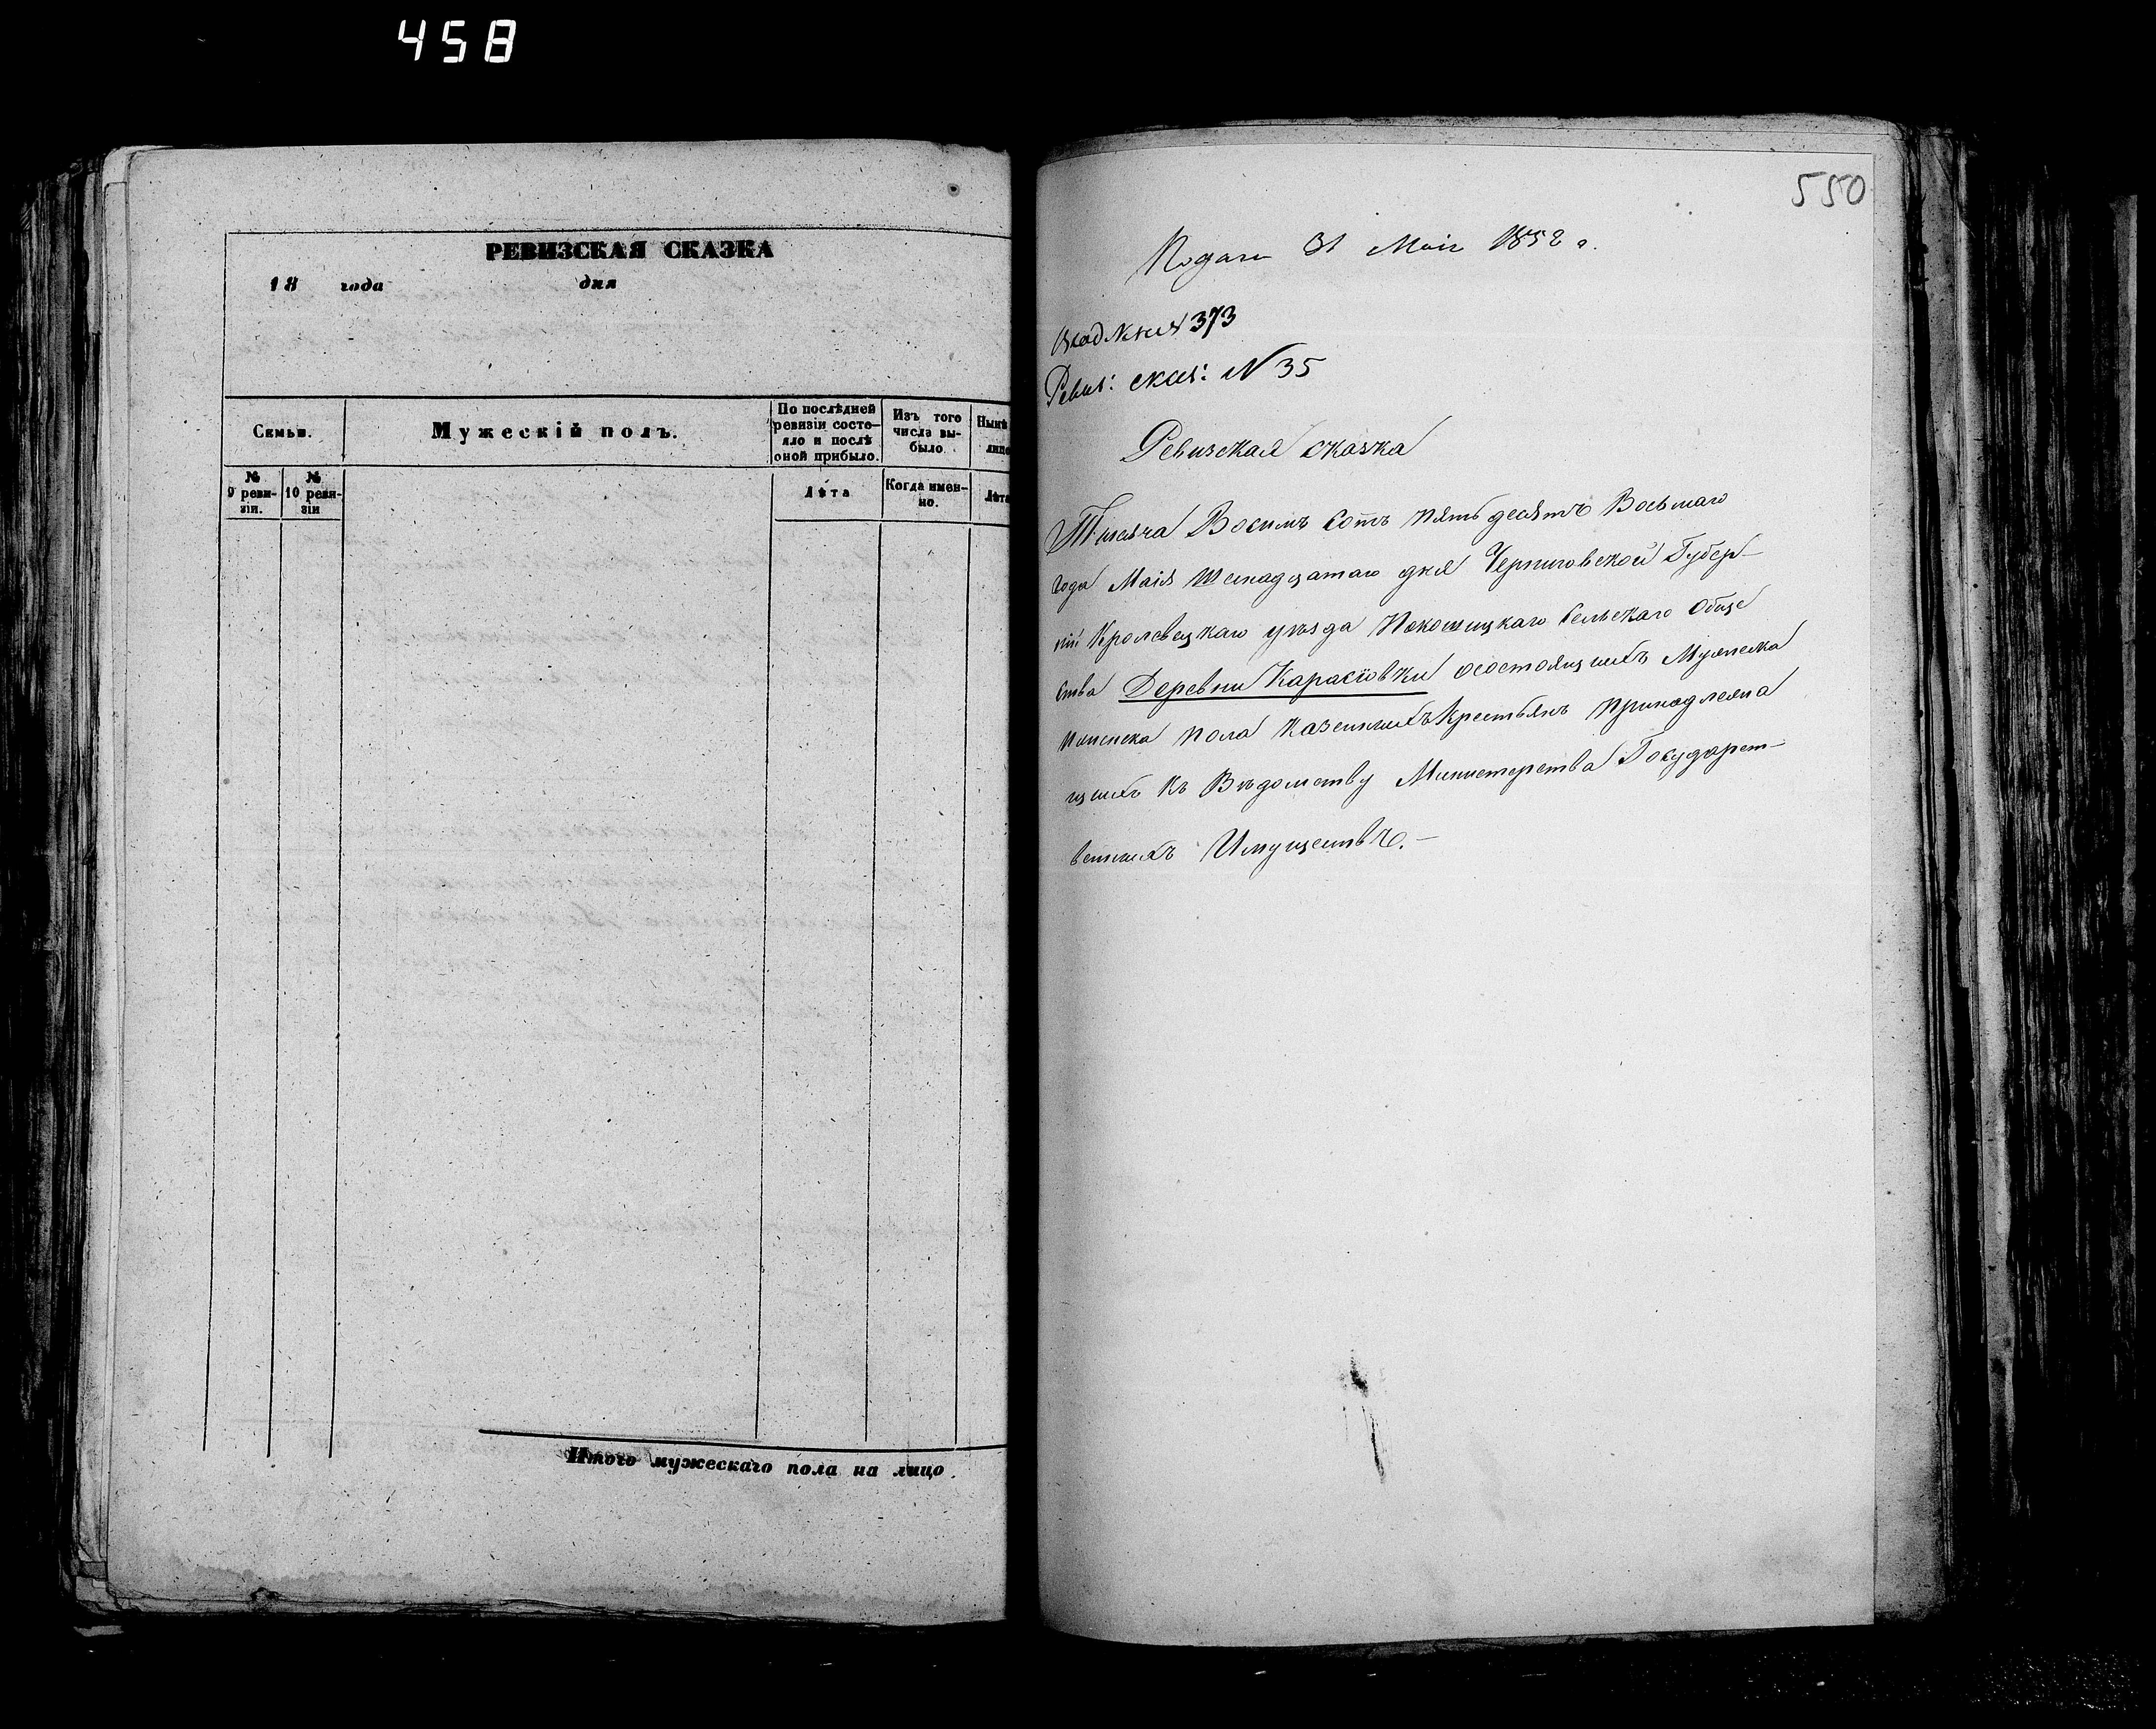 458
РЕВИЗСКАЯ СКАЗКА
18 года дня
Семьи.
Мужескій полъ.
По послѣдней
ревизіи состо-
яло и послѣ
оной прибыло.
Изъ того
числа вы-
было.
Нынѣ
лицо
№
9 реви-
зіи.
№
10 реви-
зіи
Лѣта
Когда имен-
но.
Лѣта
Итого мужескаго пола на лицо
550
31 Маія 1858 г.
373
Ревиз: сказ: N 35
Ревизская сказка
Тысяча Восимъ Сотъ пятьдесятъ Восьмаго
Года Маія Шеснадцатаго дня Черниговской Губер-
ніи Кролевецкаго уѣзда Покошицкаго Сельскаго Обще
ства Деревни Карасіовки осостоящихъ Мужеска
пола казенныхъ крестьянъ принадлежа
щихъ къ Вѣдомству Министерства Государст-
венныхъ Имуществъ.-